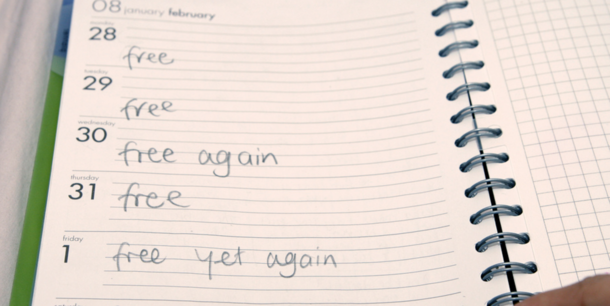 08 january february
monday
28
free
tuesday
29
free
wednesday
30
free again
thursday
31
free
friday
1
free yet again